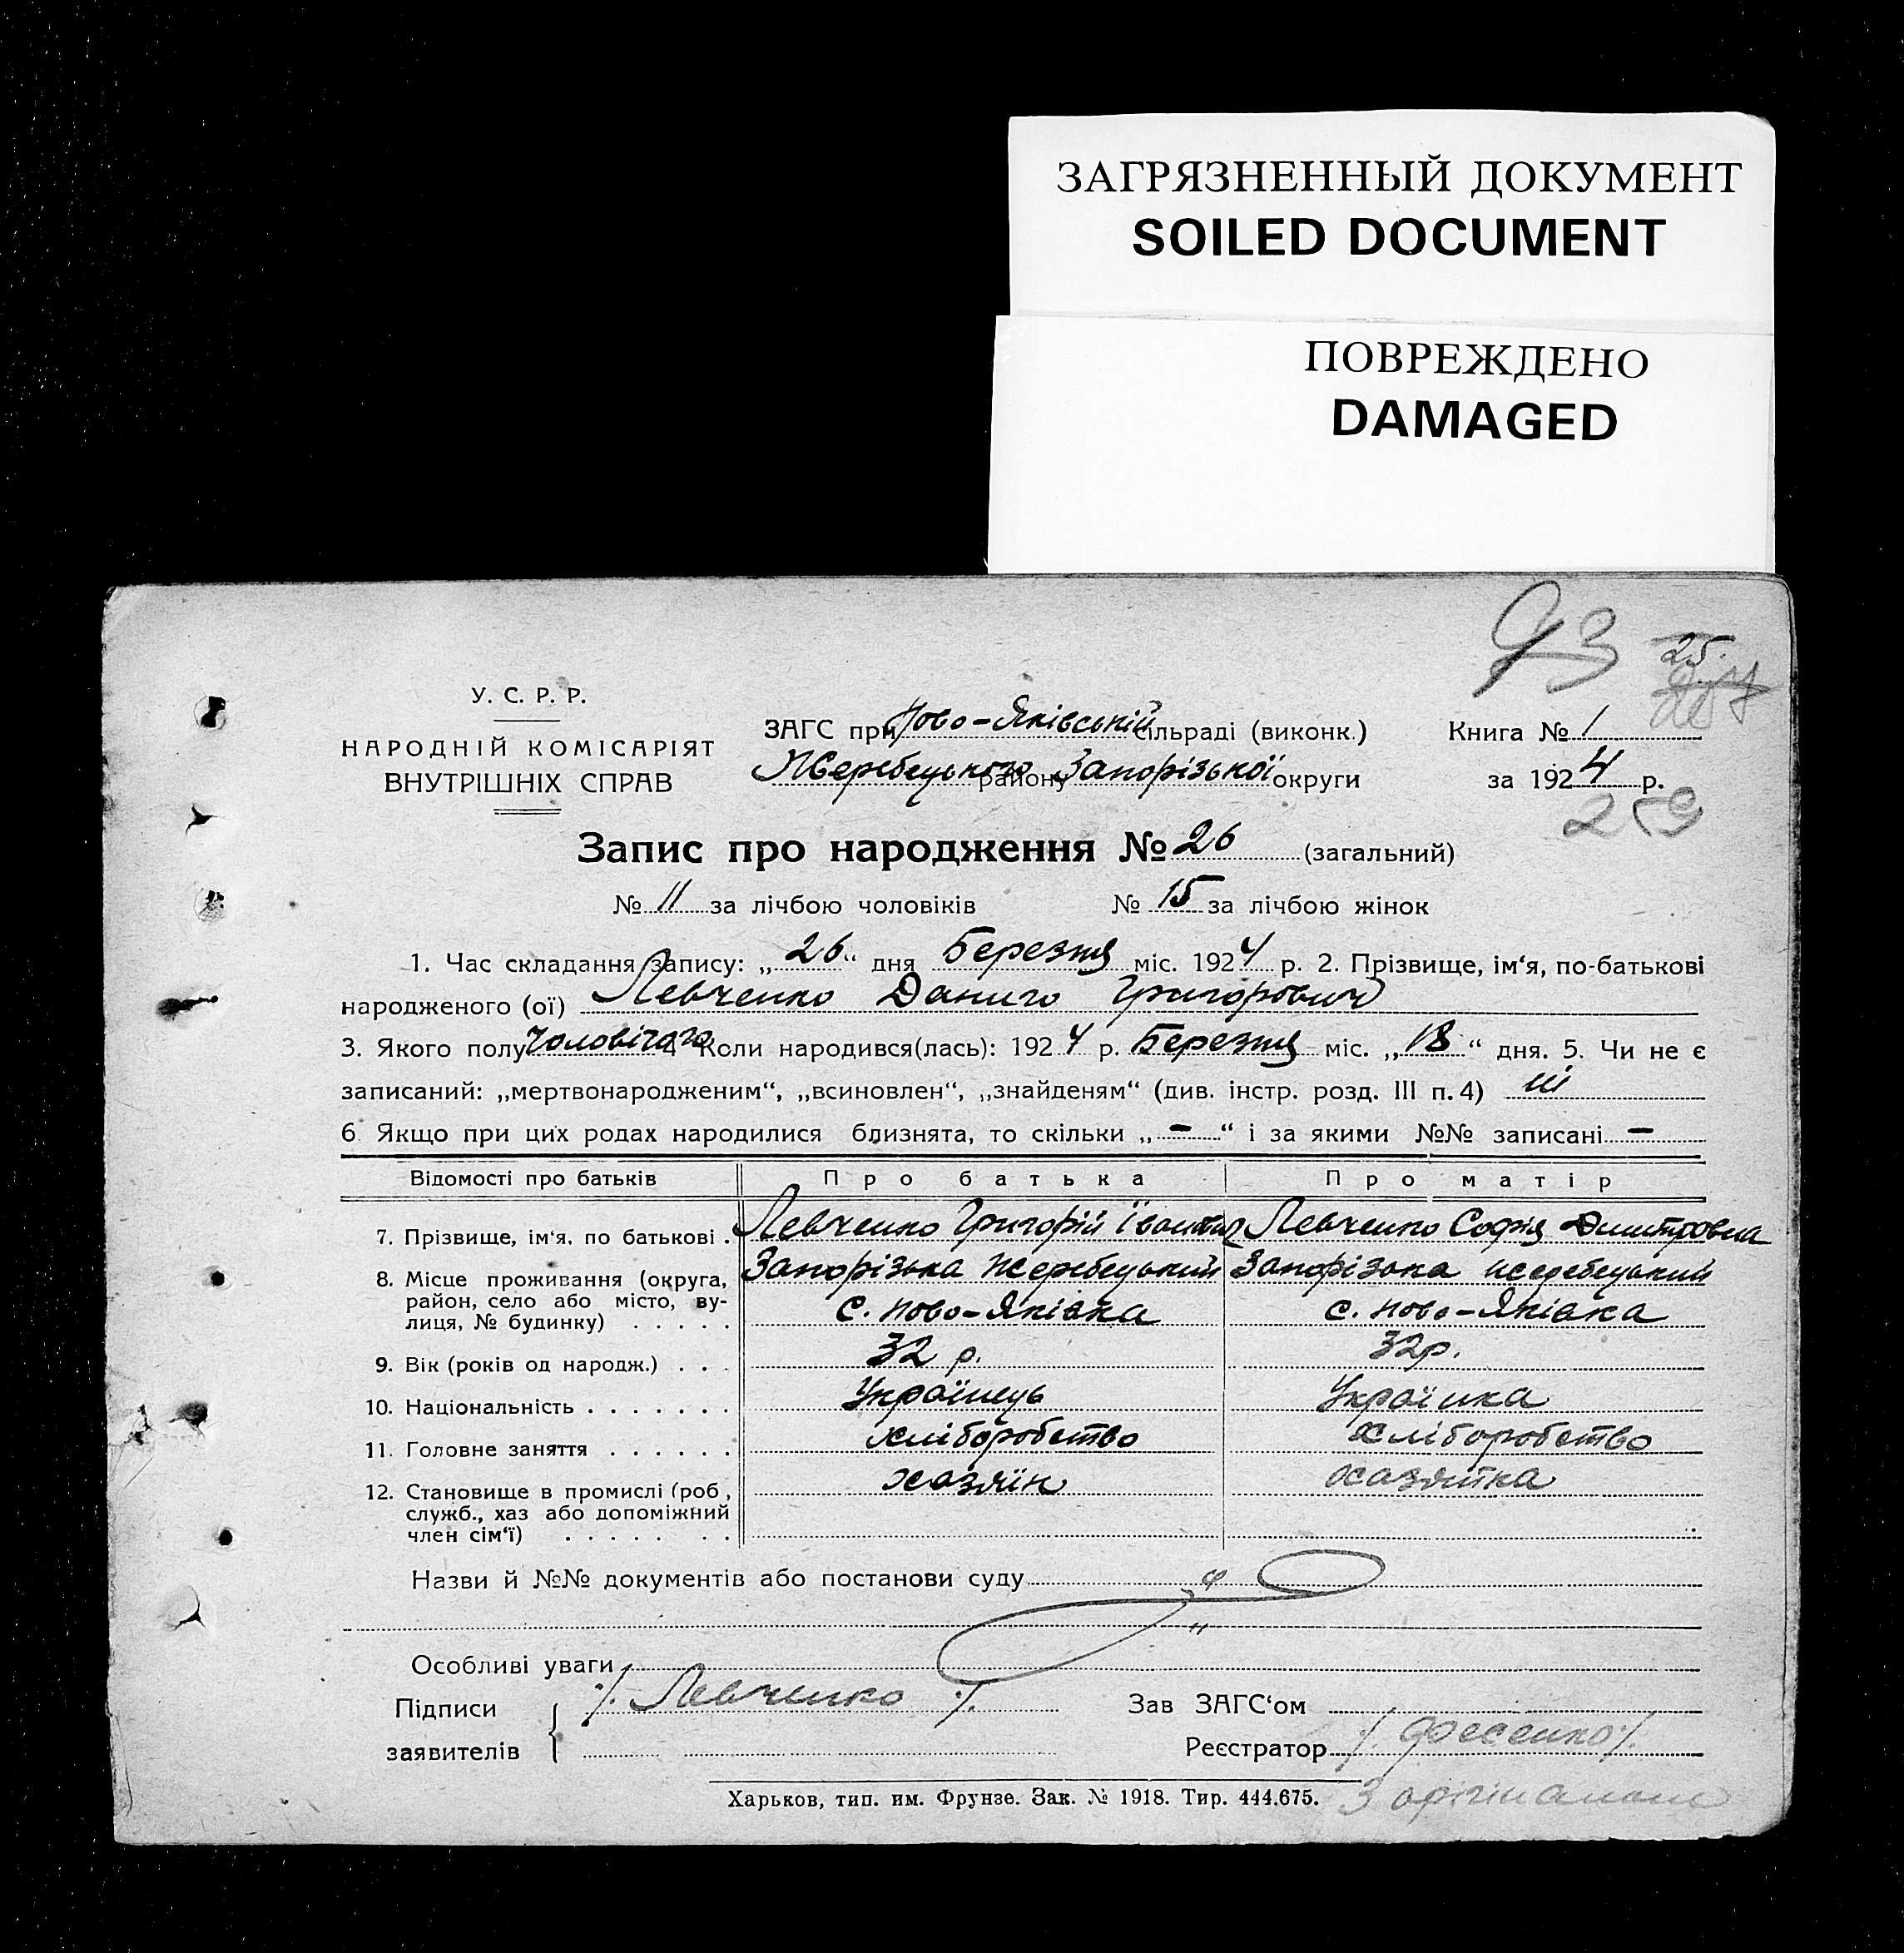 ЗАГРЯЗНЕННЫЙ ДОКУМЕНТ
SOILED DOCUMENT
ПОВРЕЖДЕНО
DAMAGED
93
25.
У. С. Р. Р.
НАРОДНІЙ КОМІСАРІЯТ
ВНУТРІШНІХ СПРАВ
ЗАГС при Ново-Яківській сільраді (виконк.)
Жеребецького району Запорізької округи
Книга № 1
за 1924 р.
259
Запис про народження № 26 (загальний)
№ 11 за лічбою чоловіків № 15 за лічбою жінок
1. Час складання запису: „26“ дня Березня міс. 1924 р. 2. Прізвище, ім‘я, по-батькові
народженого (ої) Левченко Данило Григорович
3. Якого полу Чоловічого 4 Коли народився(лась): 1924 р. Березня міс. „18“ дня. 5. Чи не є
записаний: „мертвонародженим“, „всиновлен“, „знайденям“ (див. інстр. розд. III п. 4) ні
6 Якщо при цих родах народилися близнята, то скільки „–“ і за якими №№ записані –
Відомості про батьків Про батька Про матір
7. Прізвище, ім‘я, по батькові . Левченко Григорій Іванович Левченко Софія Дмитровна
8. Місце проживання (округа, Запорізька Жеребецький Запорізька Жеребецький
район, село або місто, ву-
лиця, № будинку) . . . . . с. Ново-Яківка с. Ново-Яківка
9. Вік (років од народж.) . . . 32 р. 32 р.
10. Національність . . . . . . . Українець Українка
11. Головне заняття . . . . . . хліборобство хліборобство
12. Становище в промислі (роб, хазяїн хазяйка
служб., хаз або допоміжний
член сім‘ї) . . . . . . .
Назви й №№ документів або постанови суду
Особливі уваги
Підписи ./. Левченко ./. Зав ЗАГС‘ом
заявителів Реєстратор ./. Фесенко ./.
Харьков, тип. им. Фрунзе. Зак. № 1918. Тир. 444.675.
З оригіналом